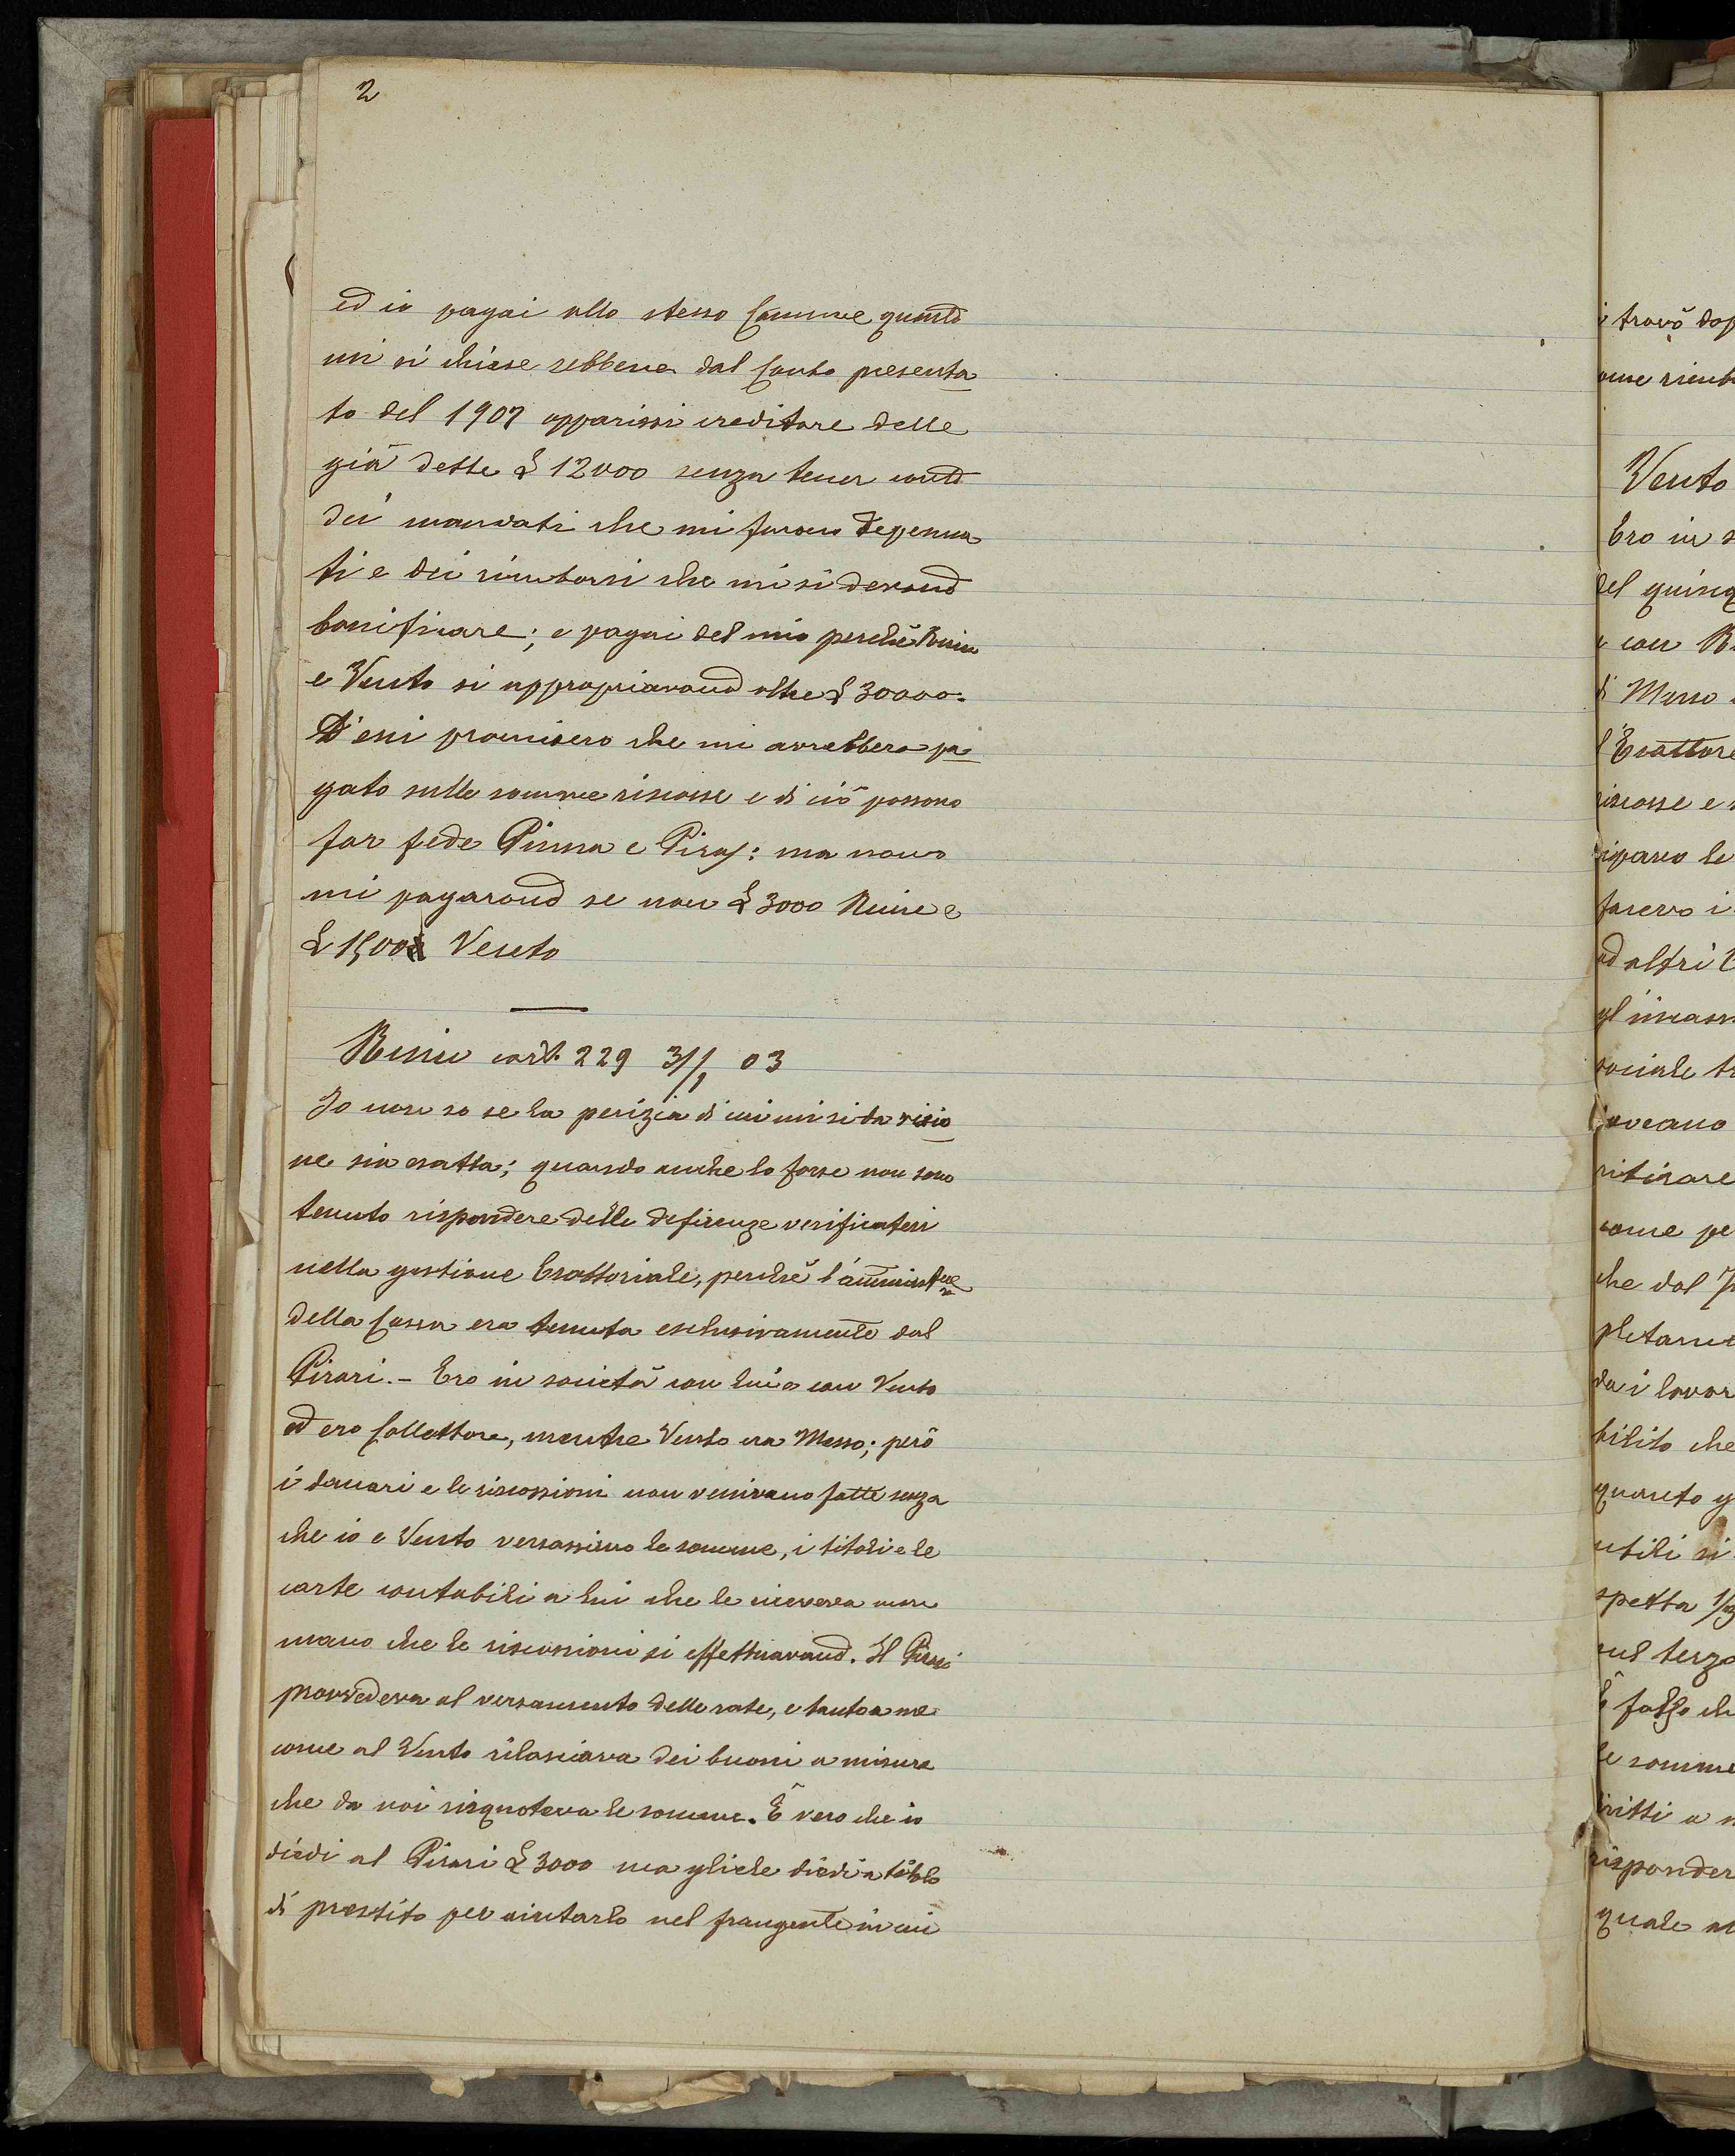 2
ed io pagai allo stesso Comune quanto
mi si chiese sebbene dal Conto presenta
to del 1907 apparissi creditore delle
già dette £ 12000 senza tener conto
dei mandati che mi furono depenna
ti e dei rimborsi che mi si devono
bonificare; e pagai del mio perchè
e Vento si appropriarono oltre £ 30000.
D'essi promisero che mi avrebbero pa
gato sulle somme riscosse e di ciò possono
far fede Pinna e Piras: ma non
mi pagarono se non £ 3000 e
£ 1500 Vento
cart. 229 3/1 03
Io non so se la perizia di cui mi si da visio
ne sia esatta; quando anche lo fosse non sono
tenuto rispondere delle deficenze verificatesi
nella gestione Esattoriale, perchè l'amministne
della Cassa era tenuta esclusivamente dal
Pirari. - Ero in società con lui e con Vento
ed ero Collettore, mentre Vento era Messo; però
i danari e le riscossioni non venivano fatte senza
che io e Vento versassimo le somme, i titoli e le
carte contabili a lui che le riceveva man
mano che le riscossioni si effettuavano. Il Pirari
provvedeva al versamento delle rate, e tanto a me
come al Vento rilasciava dei buoni a misura
che da noi risquoteva le somme. È vero che io
diedi al Pirari £ 3000 ma gliele diedi a titolo
di prestito per aiutarlo nel frangente in cui
trovò
Vento
Ero in
del
con
Messo
l'Esattore
riscosse e
le
ad altri
sociale
ritirare
come pe
che dal
bilito che
utili si
spetta 1/3
sul terzo
È falso ch
le somme
risponder
quale